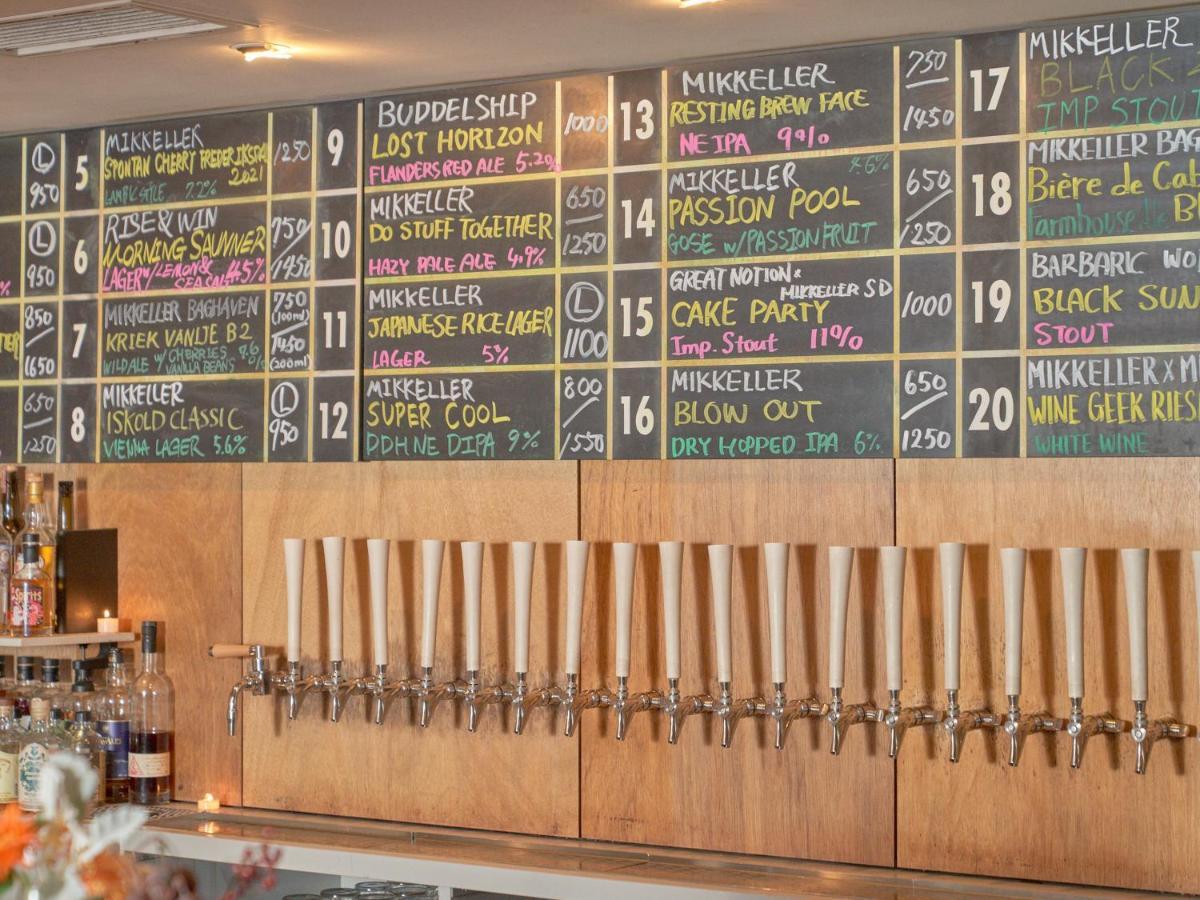 L
950
5
MIKKELLER
SPONTAN CHERRY FREDERIKSDAL
2021
LAMBIC STYLE 7.2%
1250
L
950
6
RISE & WIN
MORNING SAUNNER
LAGER w/ LEMON &
SEA SALT 4.5%
750
1450
%
850
1650
7
MIKKELLER BAGHAVEN
KRIEK VANLJE B2
WILD ALE w/ CHERRIES
VANILLA BEANS
750
(100ml)
1450
(200ml)
650
1250
8
MIKKELLER
ISKOLD CLASSIC
VIENNA LAGER 5.6%
L
950
9
BUDDELSHIP
LOST HORIZON
FLANDERS RED ALE 5.2%
1000
10
MIKKELLER
DO STUFF TOGETHER
HAZY PALE ALE 4.9%
650
1250
11
MIKKELLER
JAPANESE RICE LAGER
LAGER 5%
L
1100
12
MIKKELLER
SUPER COOL
DDH NE DIPA 9%
800
1550
13
MIKKELLER
RESTING BREW FACE
NE IPA 9%
750
1450
14
MIKKELLER 4.6%
PASSION POOL
GOSE w/ PASSION FRUIT
650
1250
15
GREAT NOTION &
MIKKELLER SD
CAKE PARTY
Imp. Stout 11%
1000
16
MIKKELLER
BLOW OUT
DRY HOPPED IPA 6%
650
1250
17
MIKKELLER
BLACK
IMP STOU
18
MIKKELLER BAG
Bière de Cat
Farmhouse B
19
BARBARIC WO
BLACK SUN
STOUT
20
MIKKELLER x M
WINE GEEK RIES
WHITE WINE
Spirits